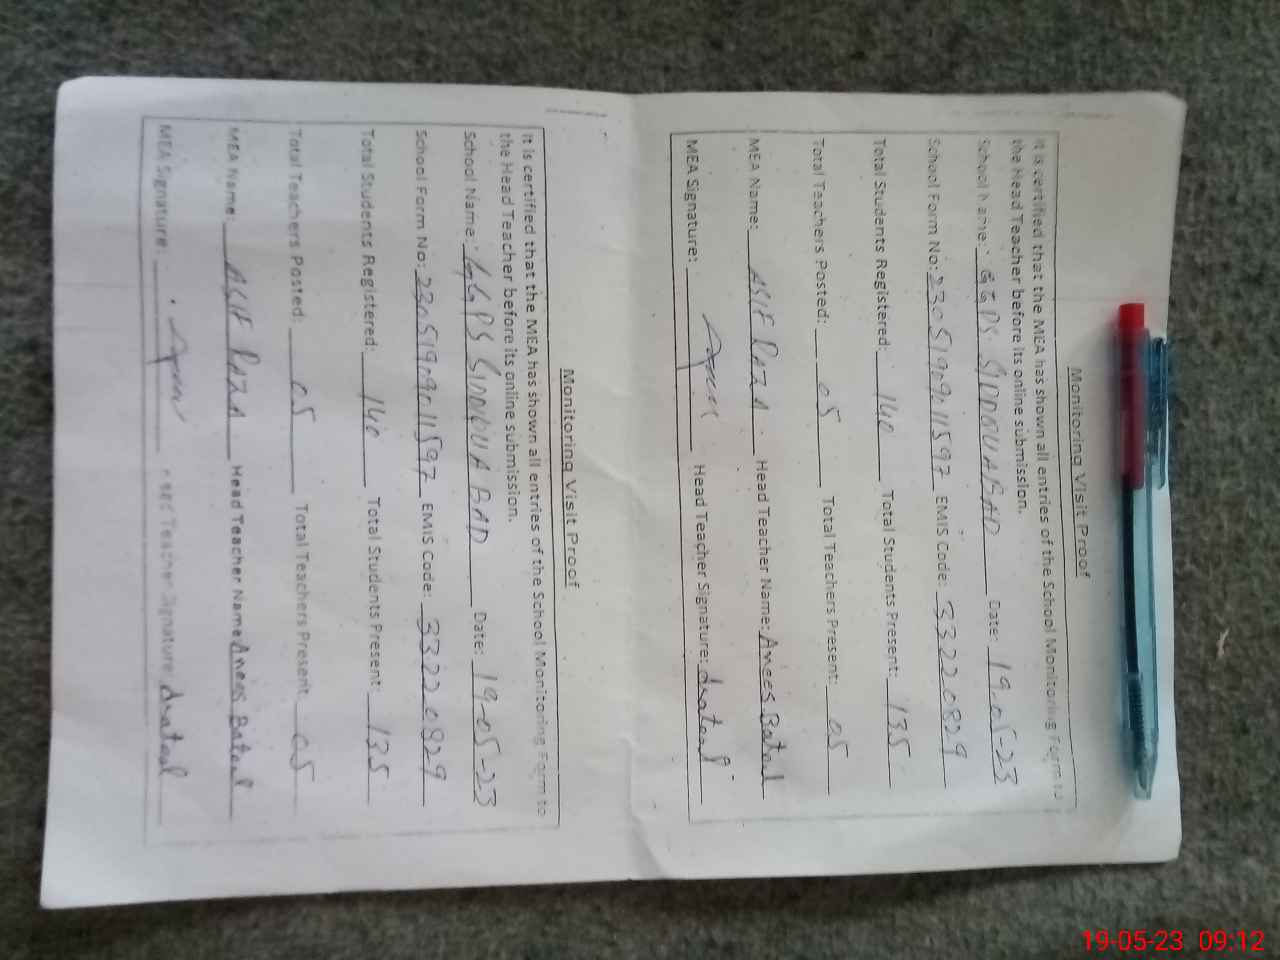 Monitoring Visit Proof
It is certified that the MEA has shown all entries of the School Monitoring Form to
the Head Teacher before its online submission.
School Name: GGPS SIDDQUABAD Date: 19-05-23
School Form No: 23051909011597 EMIS Code: 33220829
Total Students Registered: 140 Total Students Present: 135
Total Teachers Posted: 05 Total Teachers Present: 05
MEA Name: ASIF RAZA Head Teacher Name: Anees Batool
MEA Signature: Head Teacher Signature:
Monitoring Visit Proof
It is certified that the MEA has shown all entries of the School Monitoring Form to
the Head Teacher before its online submission.
School Name: GGPS SIDDQUABAD Date: 19-05-23
School Form No: 23051909011597 EMIS Code: 33220829
Total Students Registered: 140 Total Students Present: 135
Total Teachers Posted: 05 Total Teachers Present 05
MEA Name: ASIF RAZA Head Teacher Name Anees Batool
MEA Signature: Head Teacher Signature:
19-05-23 09:12